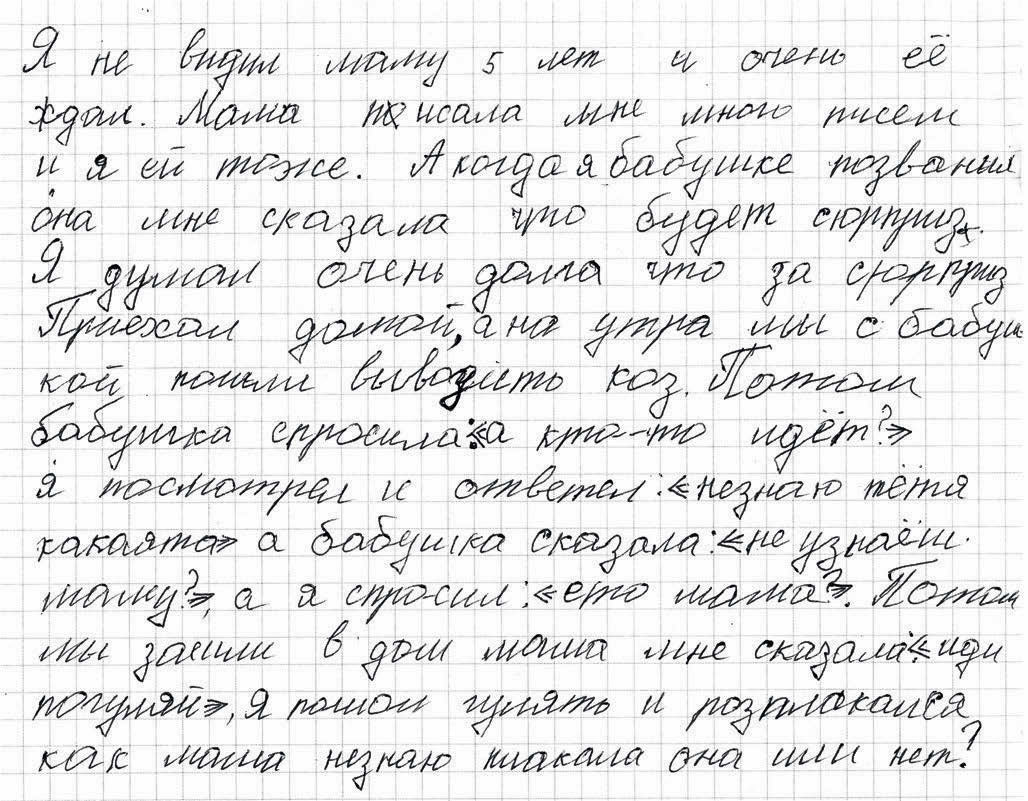 Я не видил маму 5 лет и очень её
ждал. Мама писала мне много писем
и я ей тоже. А когда я бабушке позванил
она мне сказала что будет сюрприз.
Я думал очень долга что за сюрприз
Приехал домой, а на утра мы с бабуш
кой пошли выводить коз. Потом
бабушка спросила: «а кто-то идёт?»
я посмотрел и ответел: «незнаю тётя
какаята» а бабушка сказала: «не узнаёш.
маму?», а я спросил: «ето мама?». Потом
мы зашли в дом мама мне сказала: «иди
погуляй», я пошол гулять и розплакался
как мама незнаю плакала она или нет?